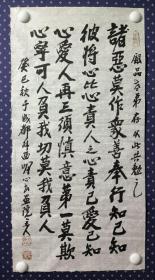 存以此共勉之
諸惡莫作眾善奉行知己知
彼將心比心責人之心責己愛己之
心愛人再三須慎意第一莫欺
心寧可人負我切莫我負人
癸巳秋于成都